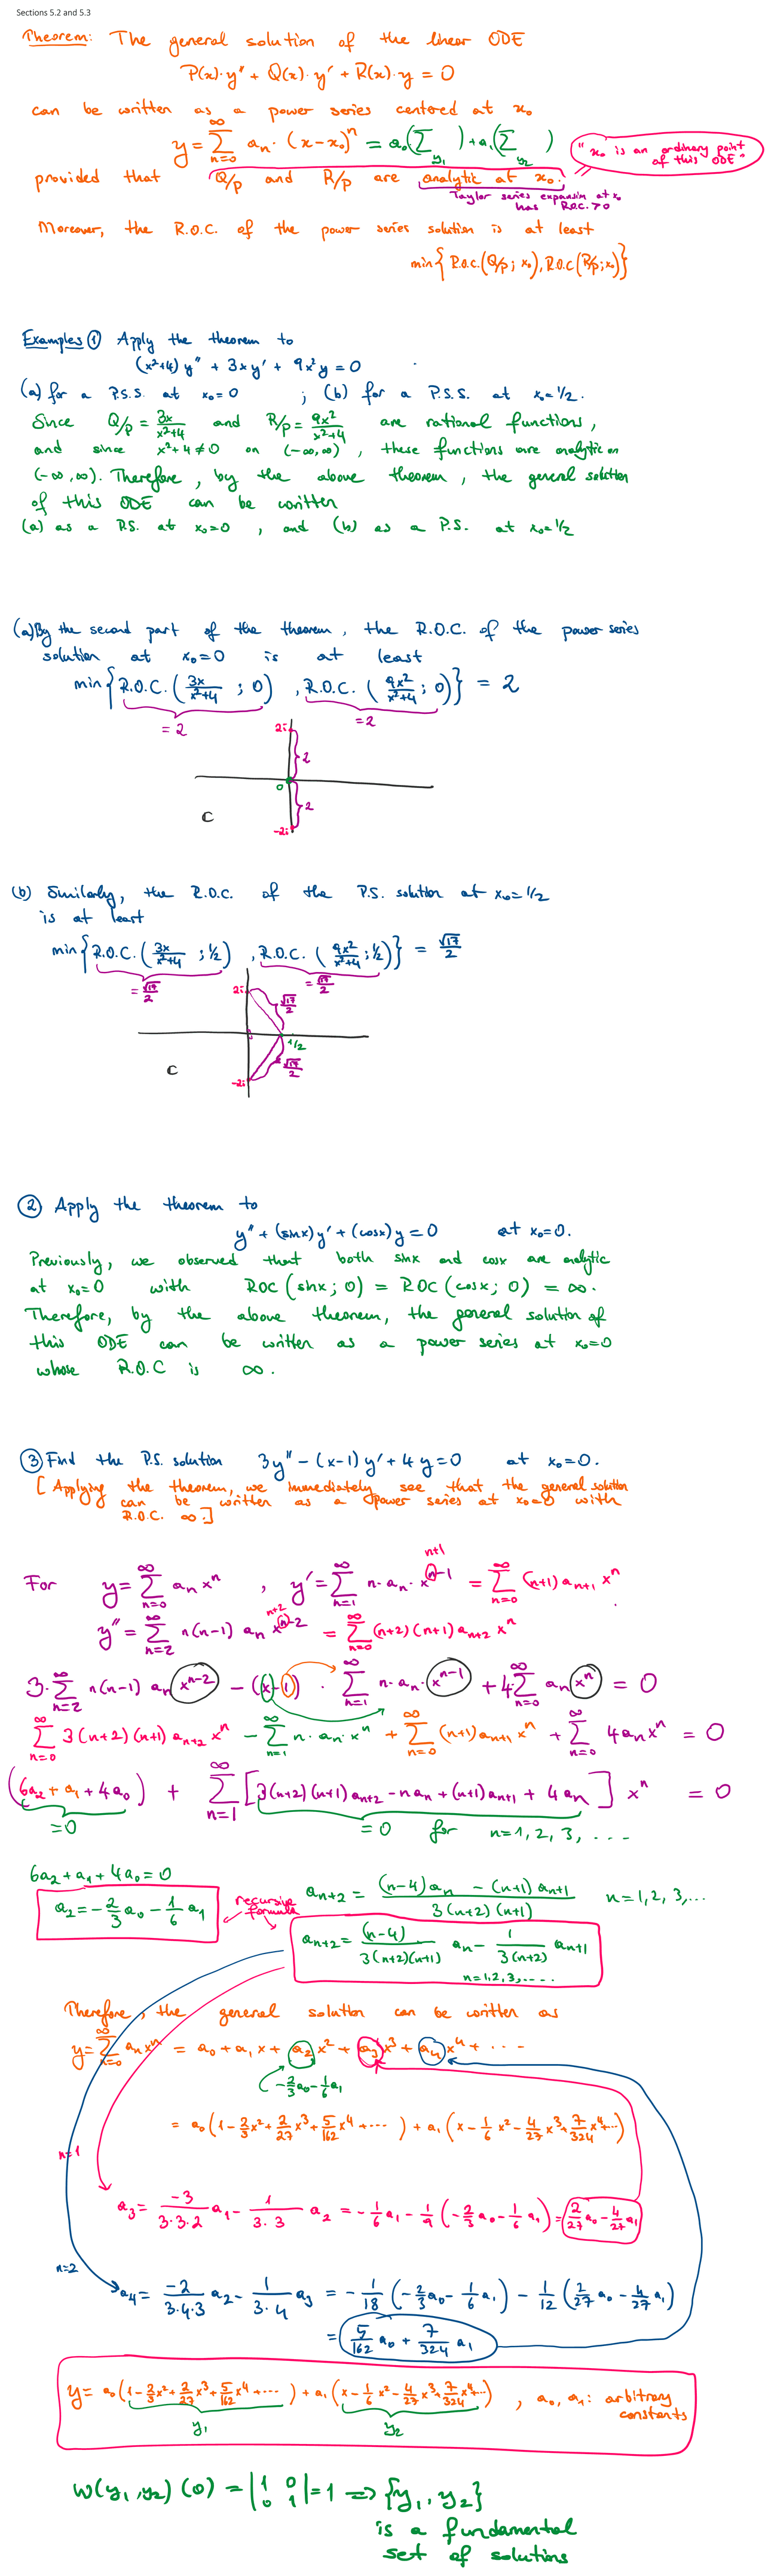 Sections 5.2 and 5.3
Theorem: The general solution of the linear ODE
P(x)·y'' + Q(x)·y' + R(x)·y = 0
can be written as a power series centered at x₀
y = ∑_{n=0}^{∞} aₙ·(x-x₀)ⁿ = a₀(∑ ) + a₁(∑ )
y₁ y₂
"x₀ is an ordinary point of this ODE"
provided that Q/P and R/P are analytic at x₀.
Taylor series expansion at x₀ has R.O.C. > 0
Moreover, the R.O.C. of the power series solution is at least
min{R.O.C.(Q/P; x₀), R.O.C(R/P; x₀)}
Examples ① Apply the theorem to
(x²+4) y'' + 3x y' + 9x² y = 0
(a) for a P.S.S. at x₀=0 ; (b) for a P.S.S. at x₀=1/2.
Since Q/P = 3x/(x²+4) and R/P = 9x²/(x²+4) are rational functions,
and since x²+4 ≠ 0 on (-∞,∞), these functions are analytic on
(-∞,∞). Therefore, by the above theorem, the general solution
of this ODE can be written
(a) as a P.S. at x₀=0 , and (b) as a P.S. at x₀=1/2
(a) By the second part of the theorem, the R.O.C. of the power series
solution at x₀=0 is at least
min{R.O.C.(3x/(x²+4) ; 0) , R.O.C.(9x²/(x²+4) ; 0)} = 2
=2 =2
2i
2
0
2
C
-2i
(b) Similarly, the R.O.C. of the P.S. solution at x₀=1/2
is at least
min{R.O.C.(3x/(x²+4) ; 1/2) , R.O.C.(9x²/(x²+4) ; 1/2)} = √17/2
= √17/2 = √17/2
2i
√17/2
1/2
√17/2
C
-2i
② Apply the theorem to
y'' + (sinx) y' + (cosx) y = 0 at x₀=0.
Previously, we observed that both sinx and cosx are analytic
at x₀=0 with ROC(sinx; 0) = ROC(cosx; 0) = ∞.
Therefore, by the above theorem, the general solution of
this ODE can be written as a power series at x₀=0
whose R.O.C is ∞.
③ Find the P.S. solution 3y'' - (x-1) y' + 4y = 0 at x₀=0.
[Applying the theorem, we immediately see that the general solution
can be written as a power series at x₀=0 with
R.O.C. ∞.]
n+1
For y = ∑_{n=0}^{∞} aₙ xⁿ , y' = ∑_{n=1}^{∞} n·aₙ·x^{n-1} = ∑_{n=0}^{∞} (n+1) a_{n+1} xⁿ.
n+2
y'' = ∑_{n=2}^{∞} n(n-1) aₙ x^{n-2} = ∑_{n=0}^{∞} (n+2)(n+1) a_{n+2} xⁿ
3·∑_{n=2}^{∞} n(n-1) aₙ x^{n-2} - (x-1)·∑_{n=1}^{∞} n·aₙ·x^{n-1} + 4∑_{n=0}^{∞} aₙ xⁿ = 0
∑_{n=0}^{∞} 3(n+2)(n+1) a_{n+2} xⁿ - ∑_{n=1}^{∞} n·aₙ·xⁿ + ∑_{n=0}^{∞} (n+1) a_{n+1} xⁿ + ∑_{n=0}^{∞} 4aₙxⁿ = 0
(6a₂ + a₁ + 4a₀) + ∑_{n=1}^{∞} [3(n+2)(n+1) a_{n+2} - n aₙ + (n+1) a_{n+1} + 4aₙ] xⁿ = 0
=0 =0 for n=1,2,3,....
6a₂ + a₁ + 4a₀ = 0
a₂ = -2/3 a₀ - 1/6 a₁
recursive formula
a_{n+2} = ((n-4) aₙ - (n+1) a_{n+1}) / (3(n+2)(n+1)) n=1,2,3,...
a_{n+2} = (n-4)/(3(n+2)(n+1)) aₙ - 1/(3(n+2)) a_{n+1}
n=1,2,3,....
Therefore, the general solution can be written as
y = ∑_{n=0}^{∞} aₙxⁿ = a₀ + a₁x + a₂x² + a₃x³ + a₄x⁴ + ···
-2/3 a₀ - 1/6 a₁
= a₀(1 - 2/3 x² + 2/27 x³ + 5/162 x⁴ + ···) + a₁(x - 1/6 x² - 4/27 x³ + 7/324 x⁴...)
n=1
a₃ = -3/(3·3·2) a₁ - 1/(3·3) a₂ = -1/6 a₁ - 1/9 (-2/3 a₀ - 1/6 a₁) = 2/27 a₀ - 4/27 a₁
n=2
a₄ = -2/(3·4·3) a₂ - 1/(3·4) a₃ = -1/18 (-2/3 a₀ - 1/6 a₁) - 1/12 (2/27 a₀ - 4/27 a₁)
= 5/162 a₀ + 7/324 a₁
y = a₀(1 - 2/3 x² + 2/27 x³ + 5/162 x⁴ + ···) + a₁(x - 1/6 x² - 4/27 x³ + 7/324 x⁴...) , a₀, a₁: arbitrary constants
y₁ y₂
W(y₁,y₂)(0) = |1 0; 0 1| = 1 => {y₁, y₂}
is a fundamental
set of solutions